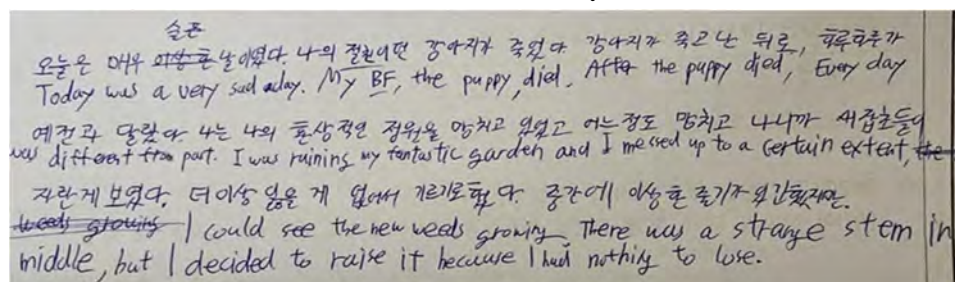 슬픈
오늘은 매우 이상한 날이었다. 나의 절친이던 강아지가 죽었다 강아지가 죽고난 뒤로, 하루하루가
Today was a very sad day. My BF, the puppy, died. After the puppy died, Every day
예전과 달랐다. 나는 나의 환상적인 정원을 망치고 있었고 어느정도 망치고 나니까 새잡초들이
was different from part. I was ruining my fantastic garden and I messed up to a certain extent, the
자란게 보였다. 더이상 잃을 게 없어서 기르기로 했다. 중간에 이상한 줄기가
weeds growing I could see the new weeds growing. There was a strange stem in
middle, but I decided to raise it because I had nothing to lose.